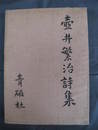 壺井繁治詩集
青磁社